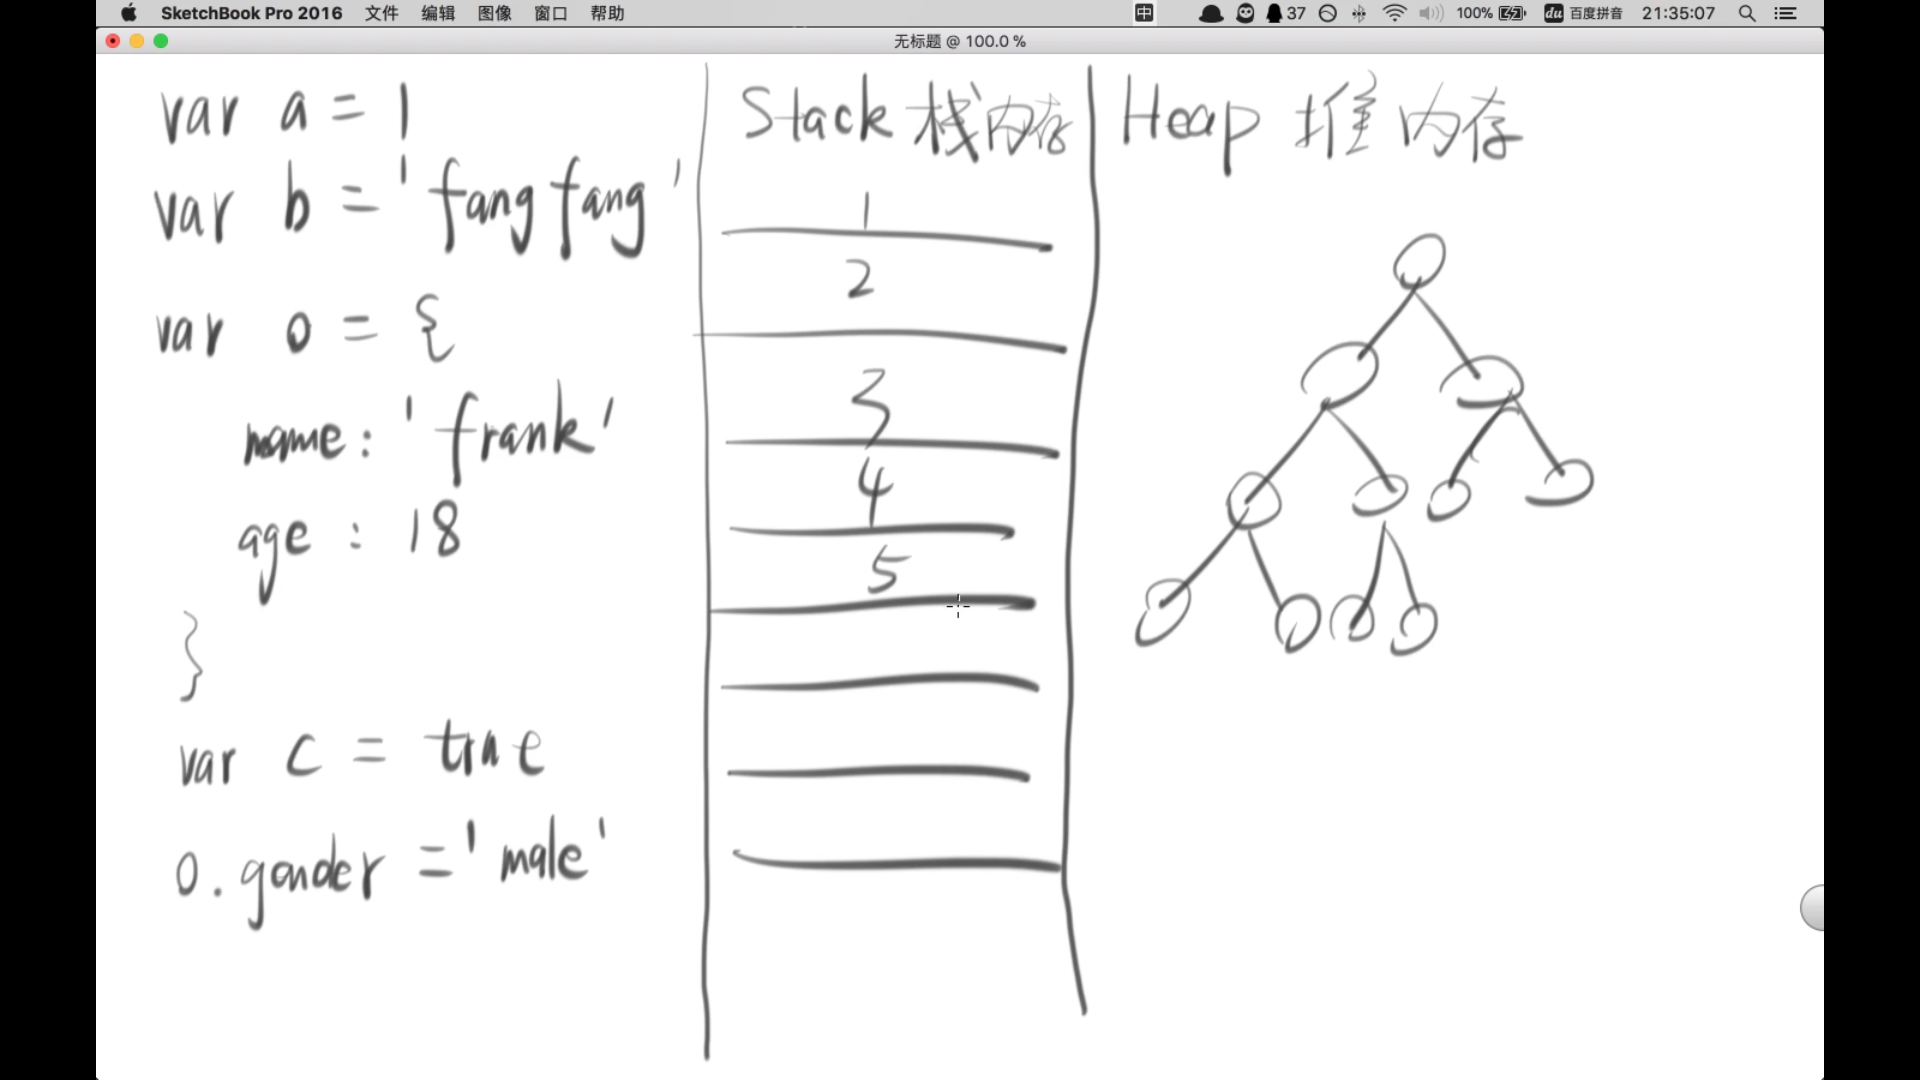 SketchBook Pro 2016 文件 编辑 图像 窗口 帮助 中 37 100% du 百度拼音 21:35:07
无标题 @ 100.0 %
var a = 1
var b = 'fangfang'
var o = {
name: 'frank'
age: 18
}
var c = true
o.gender = 'male'
Stack 栈内存
1
2
3
4
5
Heap 堆内存